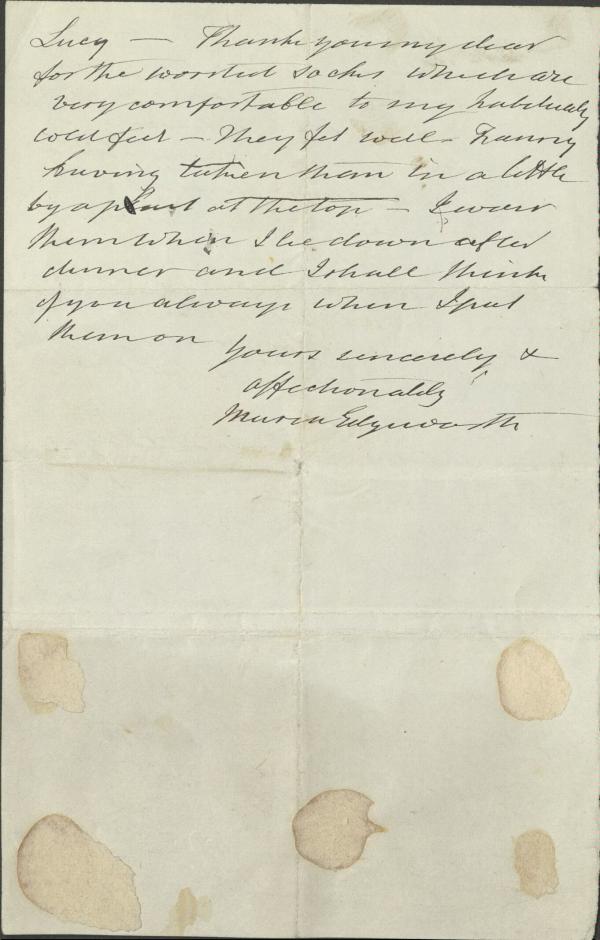 Lucy — Thank you my dear
for the worsted socks which are
very comfortable to my habitually
cold feet — They fit well – Fanny
having taken them in a little
by a pleat at the top — I wear
them when I lie down after
dinner and I shall think
of you always when I put
them on
yours sincerely &
affectionately
Maria Edgeworth